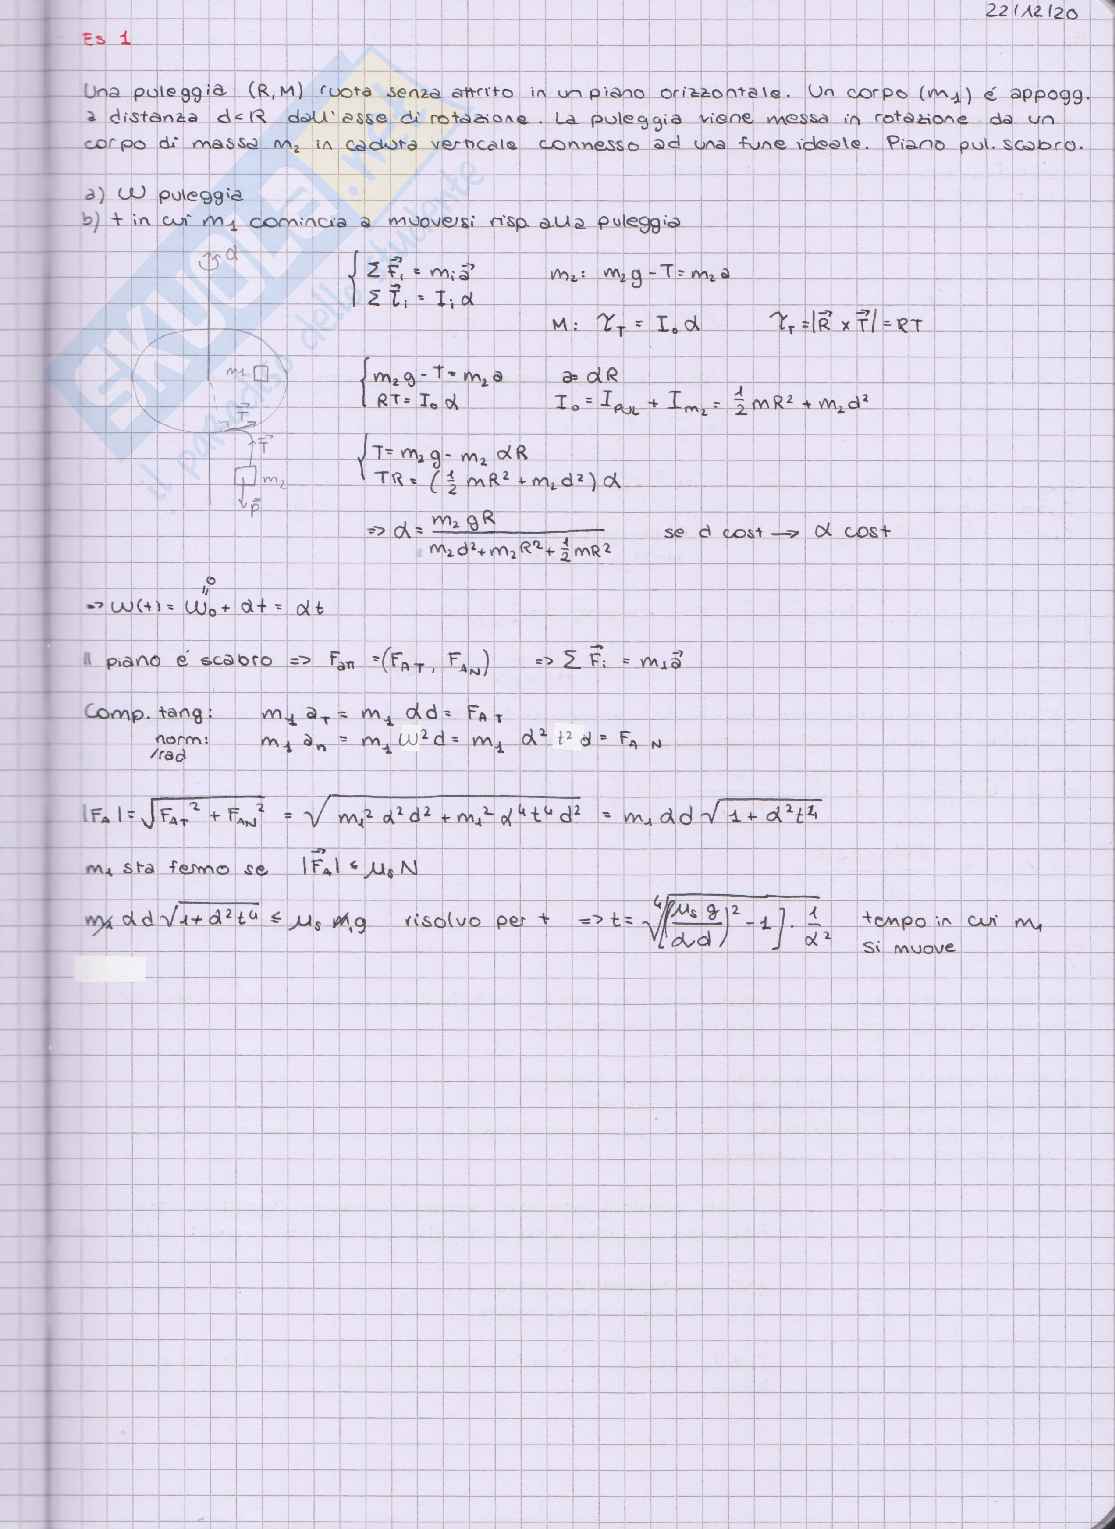 22/12/20
Es 1
Una puleggia (R,M) ruota senza attrito in un piano orizzontale. Un corpo (m₁) é appogg.
a distanza d<R dall'asse di rotazione. La puleggia viene messa in rotazione da un
corpo di massa m₂ in caduta verticale connesso ad una fune ideale. Piano pul. scabro.
a) ω puleggia
b) t in cui m₁ comincia a muoversi risp alla puleggia
α
{ Σ F⃗ᵢ = mᵢa⃗ m₂: m₂g - T = m₂a
Σ τ⃗ᵢ = Iᵢ α
M: τ_T = I₀ α τ_T = |R⃗ × T⃗| = RT
m₁
{ m₂g - T = m₂a a = αR
RT = I₀ α I₀ = I_PUL + I_m₂ = ½ mR² + m₂d²
T⃗
T⃗
m₂
P⃗
{ T = m₂g - m₂ αR
TR = (½ mR² + m₂d²) α
=> α = m₂gR / (m₂d² + m₂R² + ½mR²) se d cost → α cost
=> ω(t) = ω₀ + αt = αt
0
Il piano é scabro => Fan = (F_AT, F_AN) => Σ F⃗ᵢ = m₁a⃗
Comp. tang: m₁ a_T = m₁ αd = F_AT
norm: m₁ a_n = m₁ ω²d = m₁ α² t² d = F_AN
/rad
|F_A| = √(F_AT² + F_AN²) = √(m₁² α² d² + m₁² α⁴ t⁴ d²) = m₁ αd √(1 + α²t⁴)
m₁ sta fermo se |F⃗_A| ≤ μₛ N
m₁ αd √(1 + α²t⁴) ≤ μₛ m₁g risolvo per t => t = ⁴√([(μₛ g / αd)² - 1] · 1/α²) tempo in cui m₁
si muove
SKUOLA.net
il paradiso dello studente